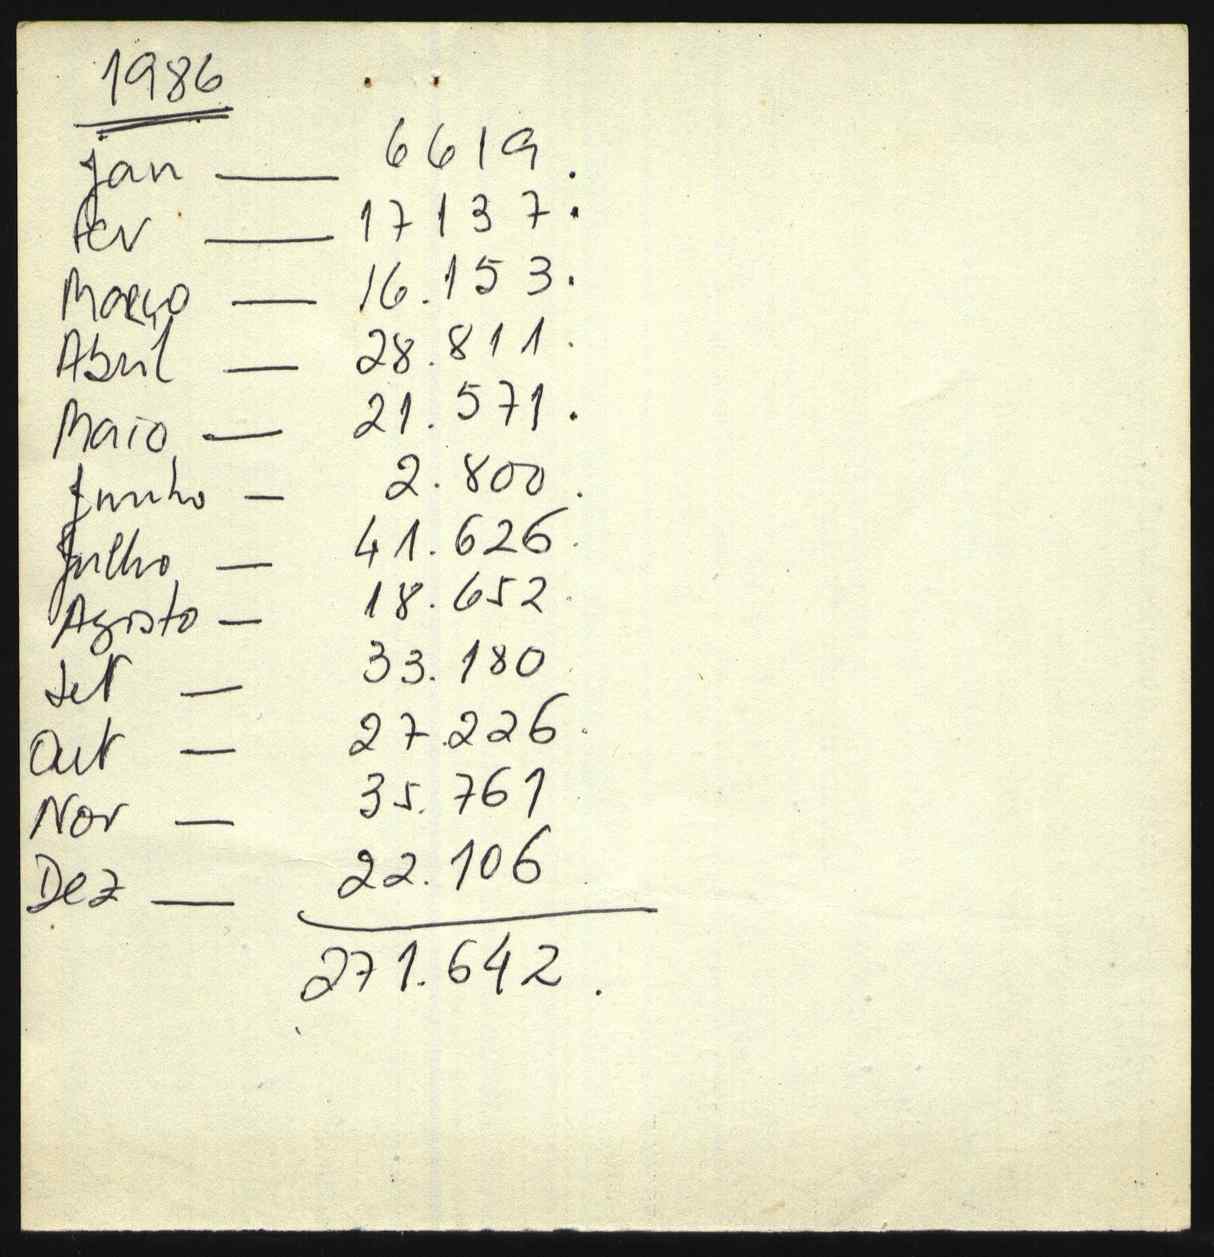 1986
Jan — 6619.
Fev — 17137.
Março — 16.153.
Abril — 28.811.
Maio — 21.571.
Junho — 2.800.
Julho — 41.626.
Agosto — 18.652.
Set — 33.180
Out — 27.226.
Nov — 35.761
Dez — 22.106
271.642.